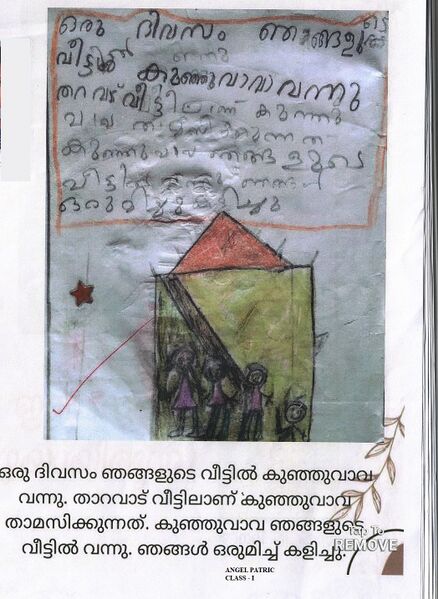 ഒരു ദിവസം ഞങ്ങളുടെ
വീട്ടിൽ
കുഞ്ഞുവാവ വന്നു
വീട്ടിലാണ് കുഞ്ഞു
കുഞ്ഞുവാവ ഞങ്ങളുടെ
വീട്ടിൽ
ഒരു ദിവസം ഞങ്ങളുടെ വീട്ടിൽ കുഞ്ഞുവാവ
വന്നു. താറവാട് വീട്ടിലാണ് കുഞ്ഞുവാവ
താമസിക്കുന്നത്. കുഞ്ഞുവാവ ഞങ്ങളുടെ
വീട്ടിൽ വന്നു. ഞങ്ങൾ ഒരുമിച്ച് കളിച്ചു.
Tap To
REMOVE
ANGEL PATRIC
CLASS - I